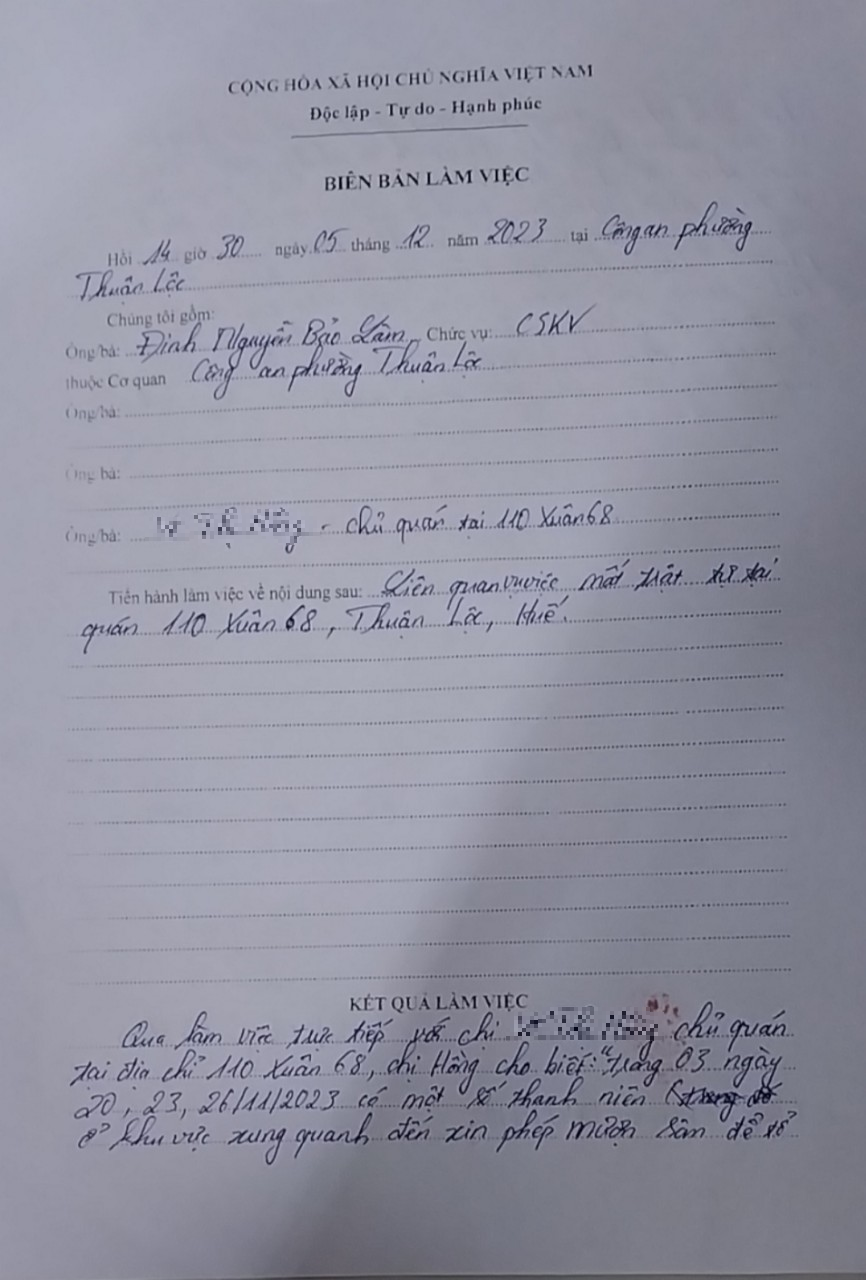 CỘNG HÒA XÃ HỘI CHỦ NGHĨA VIỆT NAM
Độc lập - Tự do - Hạnh phúc
BIÊN BẢN LÀM VIỆC
Hồi 14 giờ 30 ngày 05 tháng 12 năm 2023 tại Công an phường
Thuận Lộc
Chúng tôi gồm:
Ông/bà: Đinh Nguyễn Bảo Lâm Chức vụ: CSKV
thuộc Cơ quan Công an phường Thuận Lộc
Ông/bà:
Ông bà:
Ông/bà: - chủ quán tại 110 Xuân 68
Tiến hành làm việc về nội dung sau: Liên quan vụ việc mất trật tự tại
quán 110 Xuân 68, Thuận Lộc, Huế.
KẾT QUẢ LÀM VIỆC
Qua làm việc trực tiếp với chị chủ quán
tại địa chỉ 110 Xuân 68, chị Hồng cho biết: "trong 03 ngày
20, 23, 26/11/2023 có một số thanh niên
ở khu vực xung quanh đến xin phép mượn sân để tổ